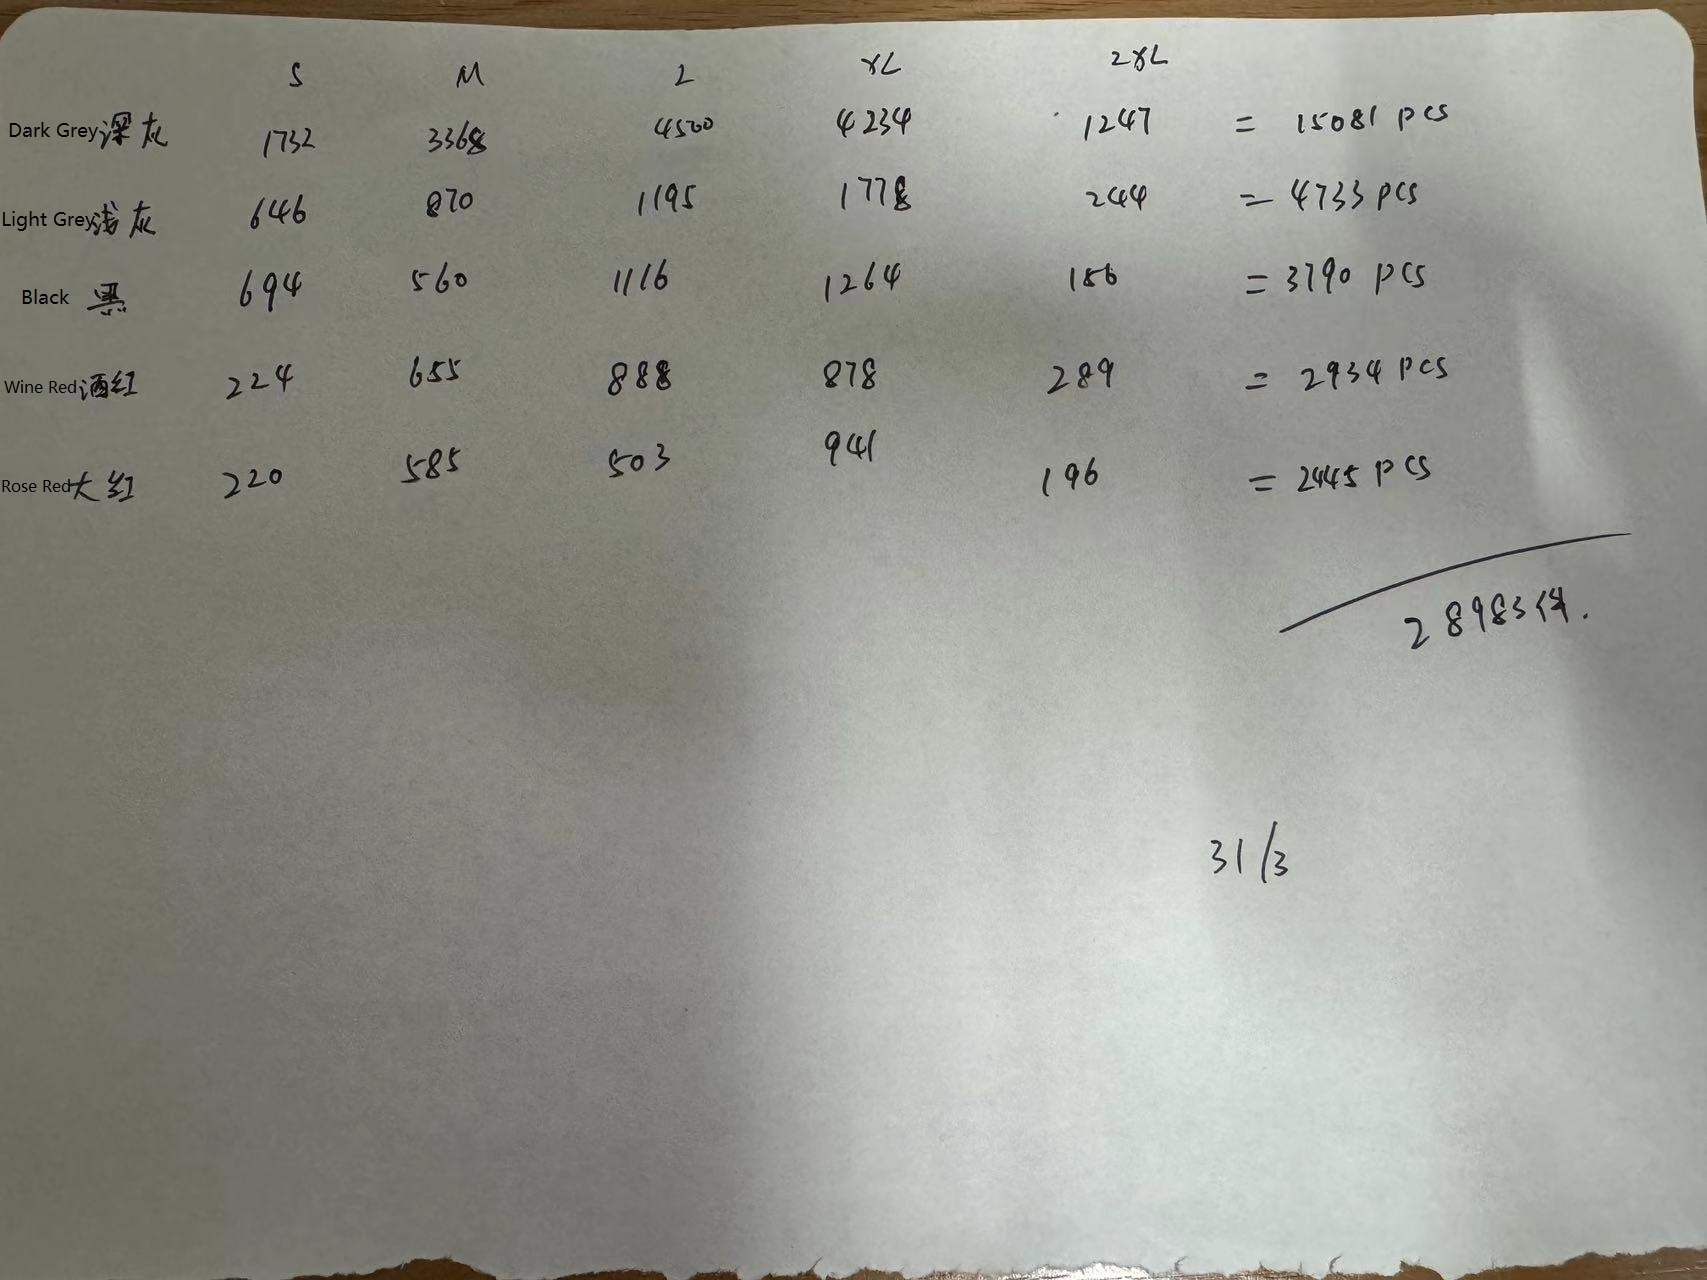 S M L XL 2XL
Dark Grey 深灰 1732 3368 4500 4234 1247 = 15081 pcs
Light Grey 浅灰 646 870 1195 1778 244 = 4733 pcs
Black 黑 694 560 1116 1264 156 = 3790 pcs
Wine Red 酒红 224 655 888 878 289 = 2934 pcs
Rose Red 大红 220 585 503 941 196 = 2445 pcs
28983件.
31/3